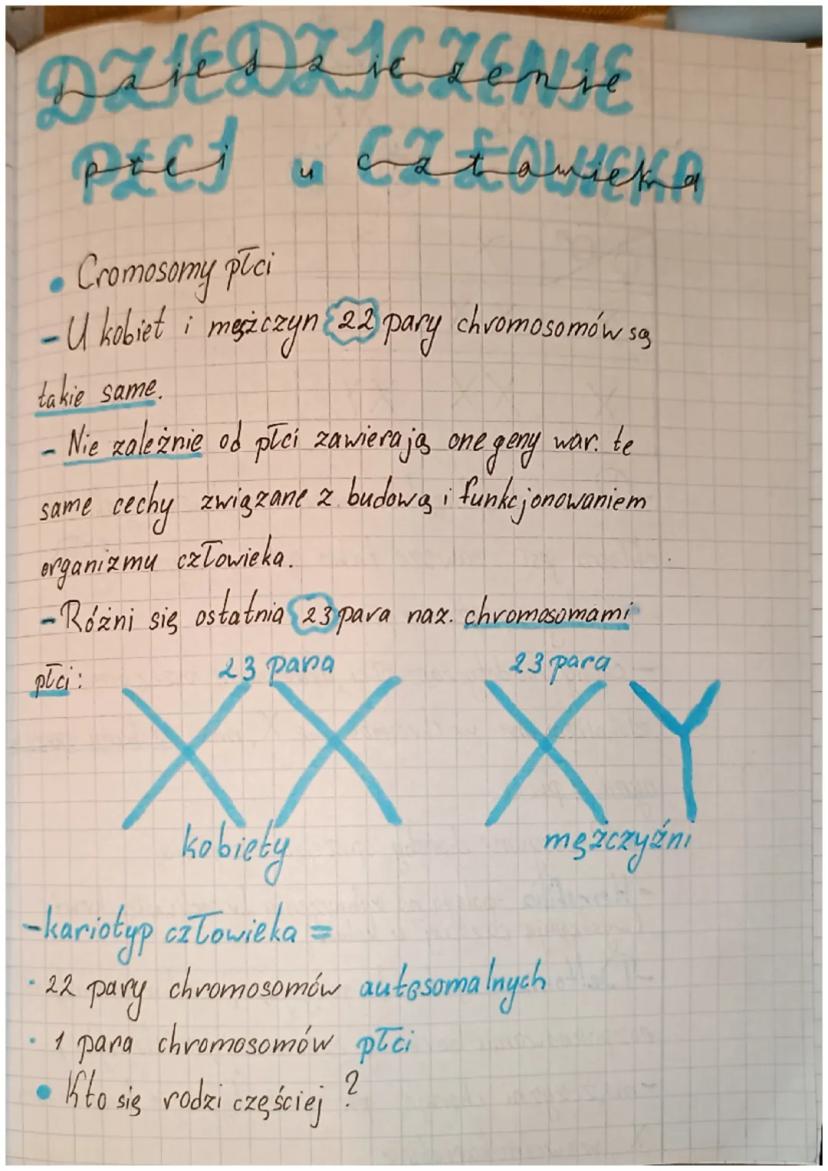 DZIEDZICZENIE
PŁCI u CZŁOWIEKA
• Cromosomy płci
- U kobiet i mężczyn 22 pary chromosomów są
takie same.
- Nie zależnie od płci zawierają one geny war. te
same cechy związane z budową i funkcjonowaniem
organizmu człowieka.
- Różni się ostatnia 23 para naz. chromosomami
płci:
23 para 23 para
XX XY
kobiety mężczyźni
- kariotyp człowieka =
· 22 pary chromosomów autosomalnych
· 1 para chromosomów płci
• Kto się rodzi częściej ?